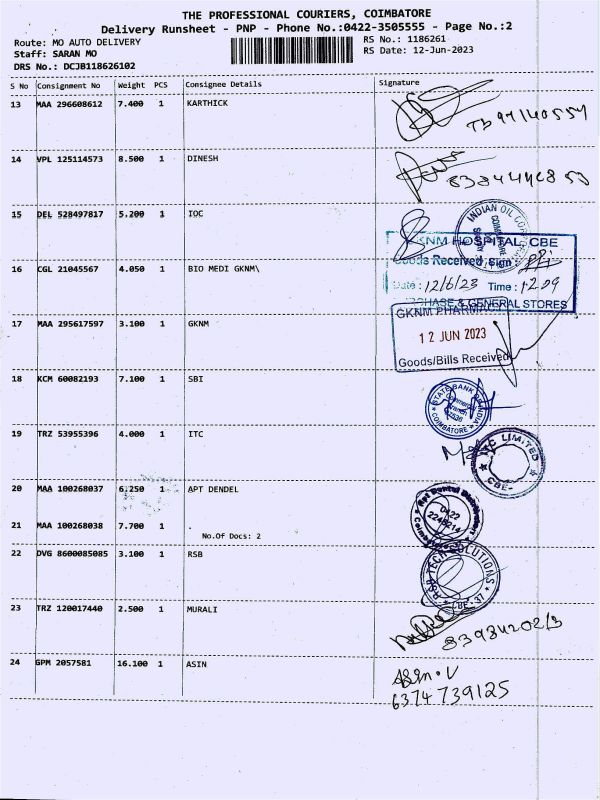 THE PROFESSIONAL COURIERS, COIMBATORE
Delivery Runsheet - PNP - Phone No.:0422-3505555 - Page No.:2
Route: MO AUTO DELIVERY
RS No.: 1186261
Staff: SARAN MO
RS Date: 12-Jun-2023
DRS No.: DCJB118626102
S No Consignment No Weight PCS Consignee Details Signature
13 MAA 296608612 7.400 1 KARTHICK
14 VPL 125114573 8.500 1 DINESH
15 DEL 528497817 5.200 1 IOC
INDIAN OIL
COIMBATORE
GKNM HOSPITAL, CBE
Goods Received, Sign :
16 CGL 21045567 4.050 1 BIO MEDI GKNM\
Date : 12/6/23 Time : 12.09
PURCHASE & GENERAL STORES
GKNM PHARMACY
17 MAA 295617597 3.100 1 GKNM
12 JUN 2023
Goods/Bills Received
18 KCM 60082193 7.100 1 SBI
STATE BANK
COIMBATORE
19 TRZ 53955396 4.000 1 ITC
ITC LIMITED
CBE-
20 MAA 100268037 6.250 1 APT DENDEL
0422
2246214
21 MAA 100268038 7.700 1
No.Of Docs: 2
22 DVG 8600085085 3.100 1 RSB
TECH SOLUTIONS
CBE-37
23 TRZ 120017440 2.500 1 MURALI
24 GPM 2057581 16.100 1 ASIN
Asin.V
6374 739125